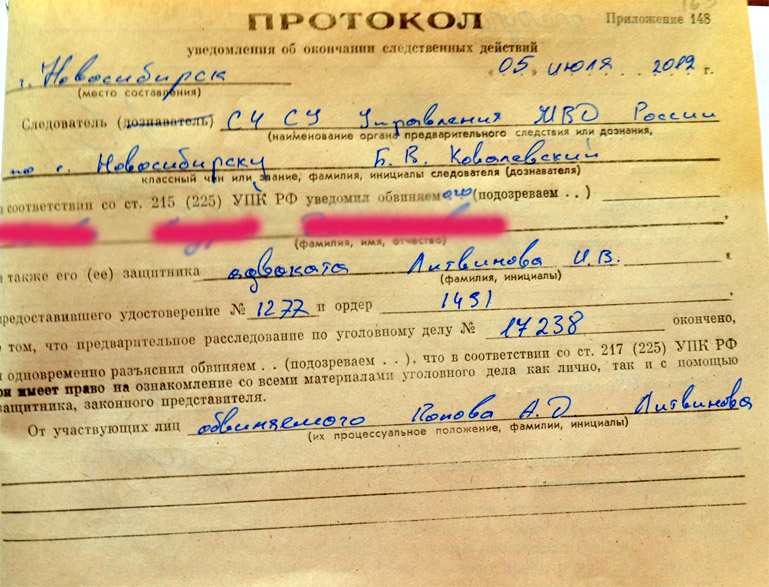 ПРОТОКОЛ
Приложение 148
уведомления об окончании следственных действий
г. Новосибирск
«05» июля 2012 г.
(место составления)
Следователь (дознаватель) СЧ СУ Управления МВД России
(наименование органа предварительного следствия или дознания,
по г. Новосибирску Б. В. Ковалевский
классный чин или звание, фамилия, инициалы следователя (дознавателя)
в соответствии со ст. 215 (225) УПК РФ уведомил обвиняемого (подозреваем . . )
(фамилия, имя, отчество)
а также его (ее) защитника адвоката Литвинова И.В.
(фамилия, инициалы)
предоставившего удостоверение № 1277 и ордер 1491
о том, что предварительное расследование по уголовному делу № 17238 окончено,
и одновременно разъяснил обвиняем . . (подозреваем . . ), что в соответствии со ст. 217 (225) УПК РФ
он имеет право на ознакомление со всеми материалами уголовного дела как лично, так и с помощью
защитника, законного представителя.
От участвующих лиц обвиняемого Попова А.Д Литвинова
(их процессуальное положение, фамилии, инициалы)